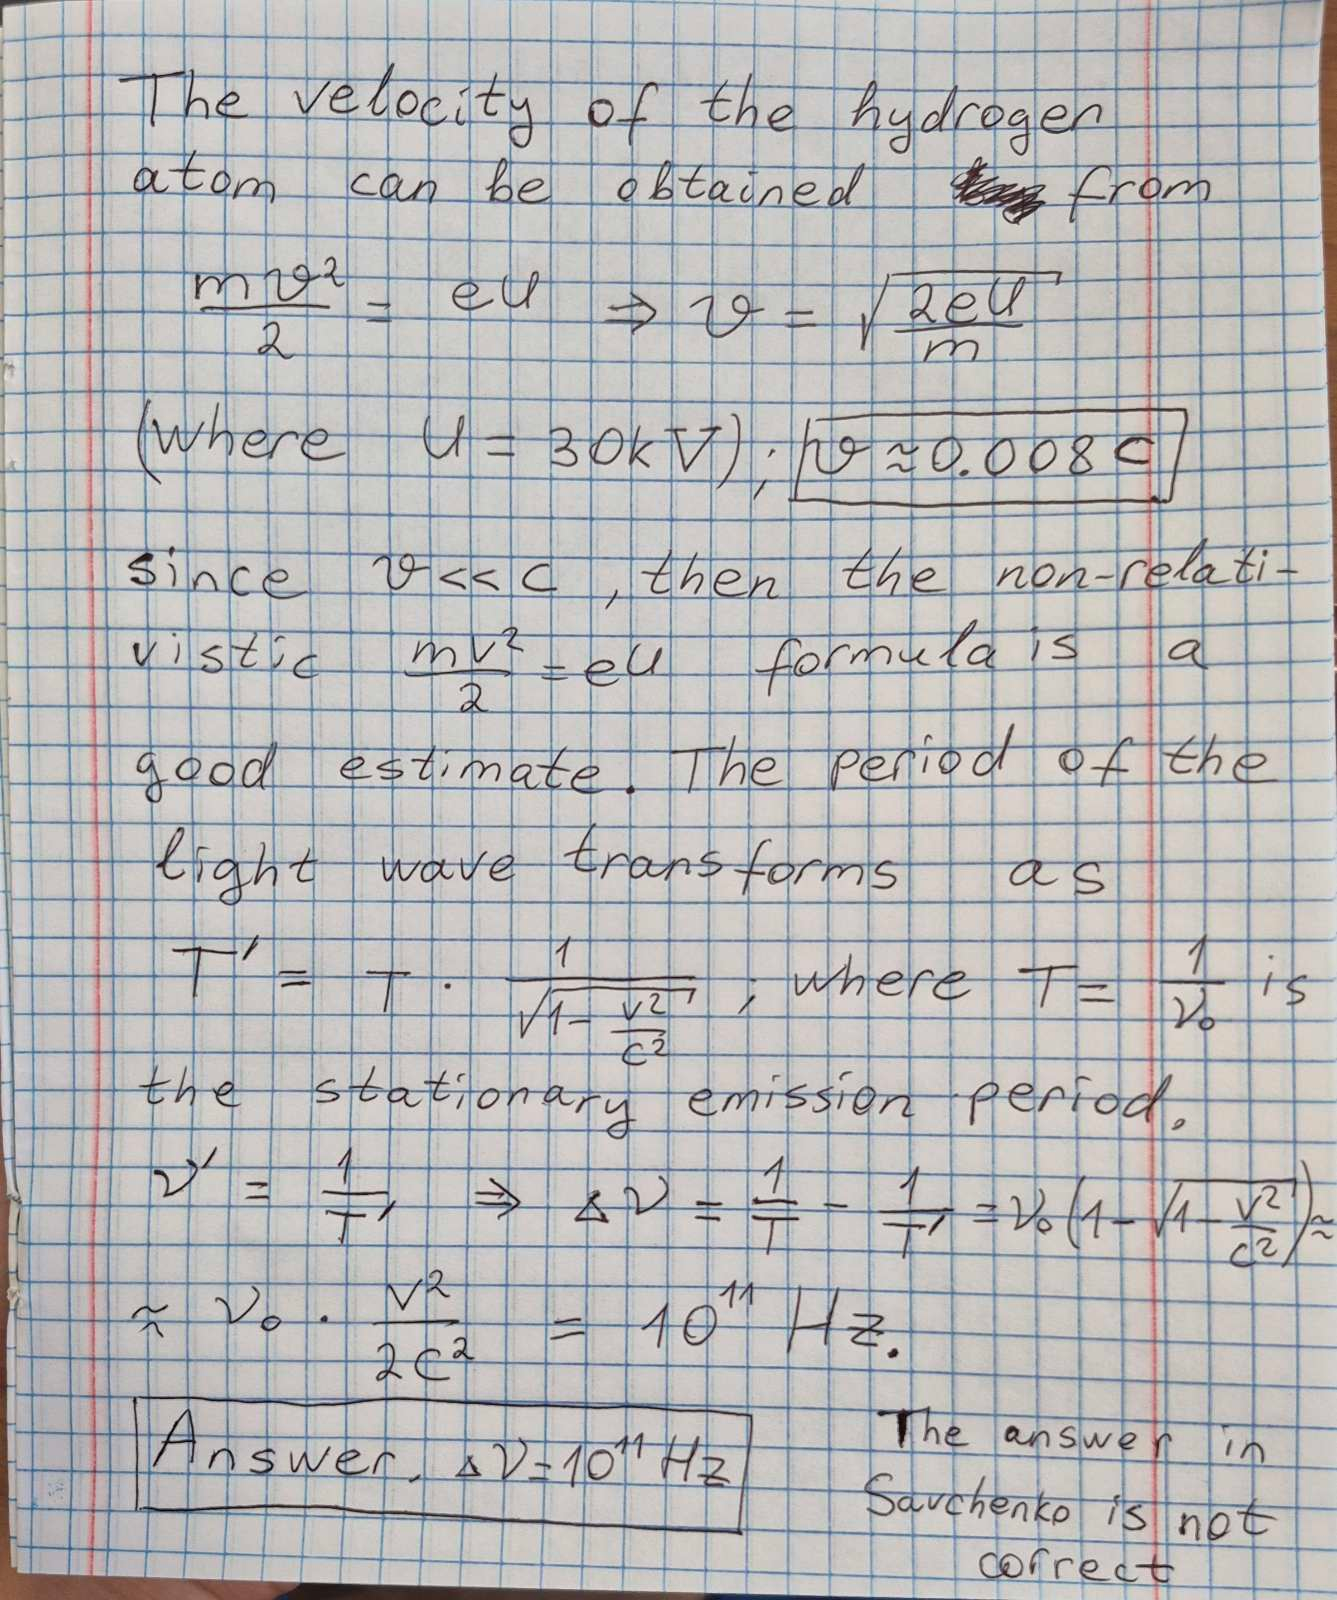 The velocity of the hydrogen
atom can be obtained from
mϑ²/2 = eU ⇒ ϑ = √(2eU/m)
(where U = 30kV); ϑ ≈ 0.008 c
since ϑ << c , then the non-relati-
vistic mv²/2 = eU formula is a
good estimate. The period of the
light wave transforms as
T' = T · 1/√(1 - v²/c²) ; where T = 1/ν₀ is
the stationary emission period.
ν' = 1/T' ⇒ Δν = 1/T - 1/T' = ν₀(1 - √(1 - v²/c²)) ≈
≈ ν₀ · v²/2c² = 10¹¹ Hz.
Answer. Δν = 10¹¹ Hz
The answer in
Savchenko is not
correct